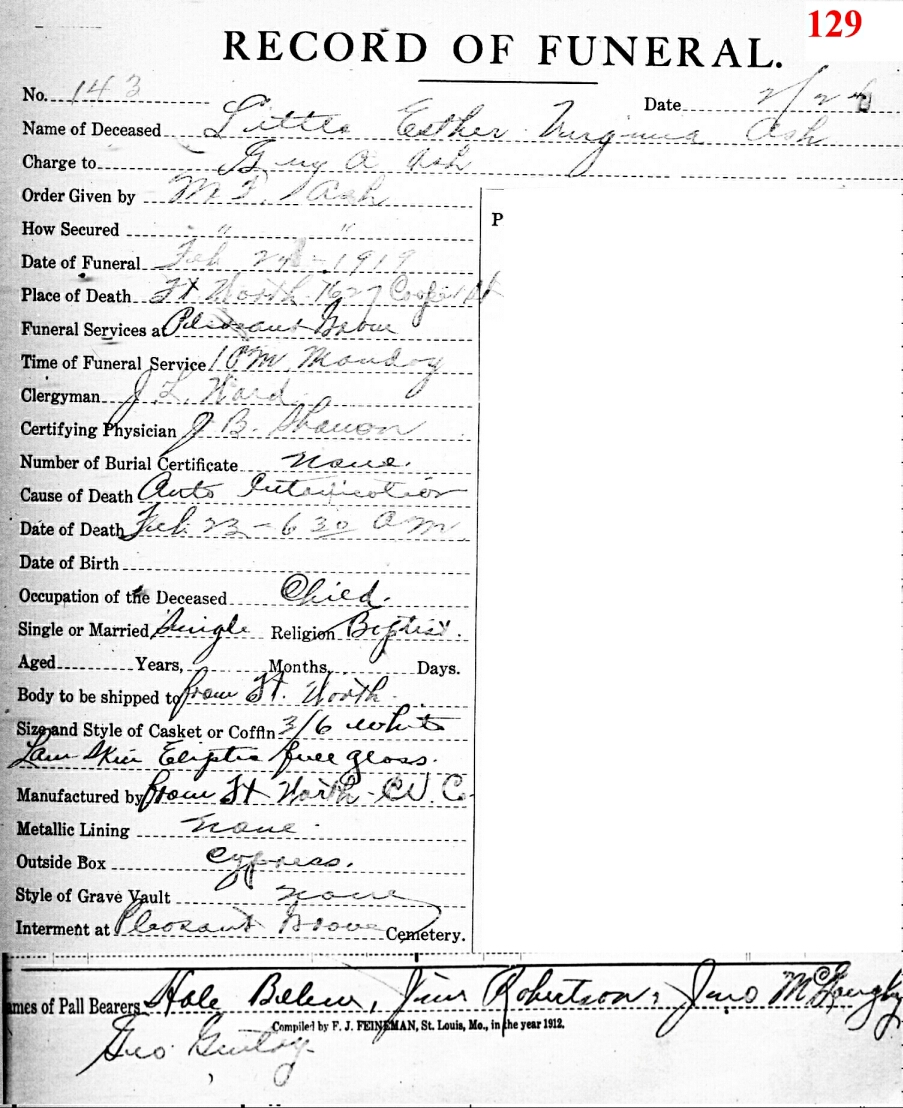 129
RECORD OF FUNERAL.
No. 143 Date 2/24
Name of Deceased Little Esther Virginia Ash
Charge to Guy A Ash
Order Given by M Ash
P
How Secured " "
Date of Funeral Feb 24 - 1919
Place of Death Ft Worth 1627 Cooper St
Funeral Services at Pleasant Grove
Time of Funeral Service 10 AM. Monday
Clergyman J. L. Ward
Certifying Physician J B. Shanon
Number of Burial Certificate none.
Cause of Death Auto Intoxication
Date of Death Feb. 23 - 6 30 AM
Date of Birth
Occupation of the Deceased Child.
Single or Married Single Religion Baptist.
Aged Years, Months, Days.
Body to be shipped to from Ft. Worth.
Size and Style of Casket or Coffin 3/6 white
Lam Skin Eliptic full glass.
Manufactured by from Ft Worth - C. Co
Metallic Lining none
Outside Box cypress.
Style of Grave Vault none
Interment at Pleasant Grove Cemetery.
mes of Pall Bearers Hale Jim Robertson, Jno
Compiled by F. J. FEINEMAN, St. Louis, Mo., in the year 1912.
Geo